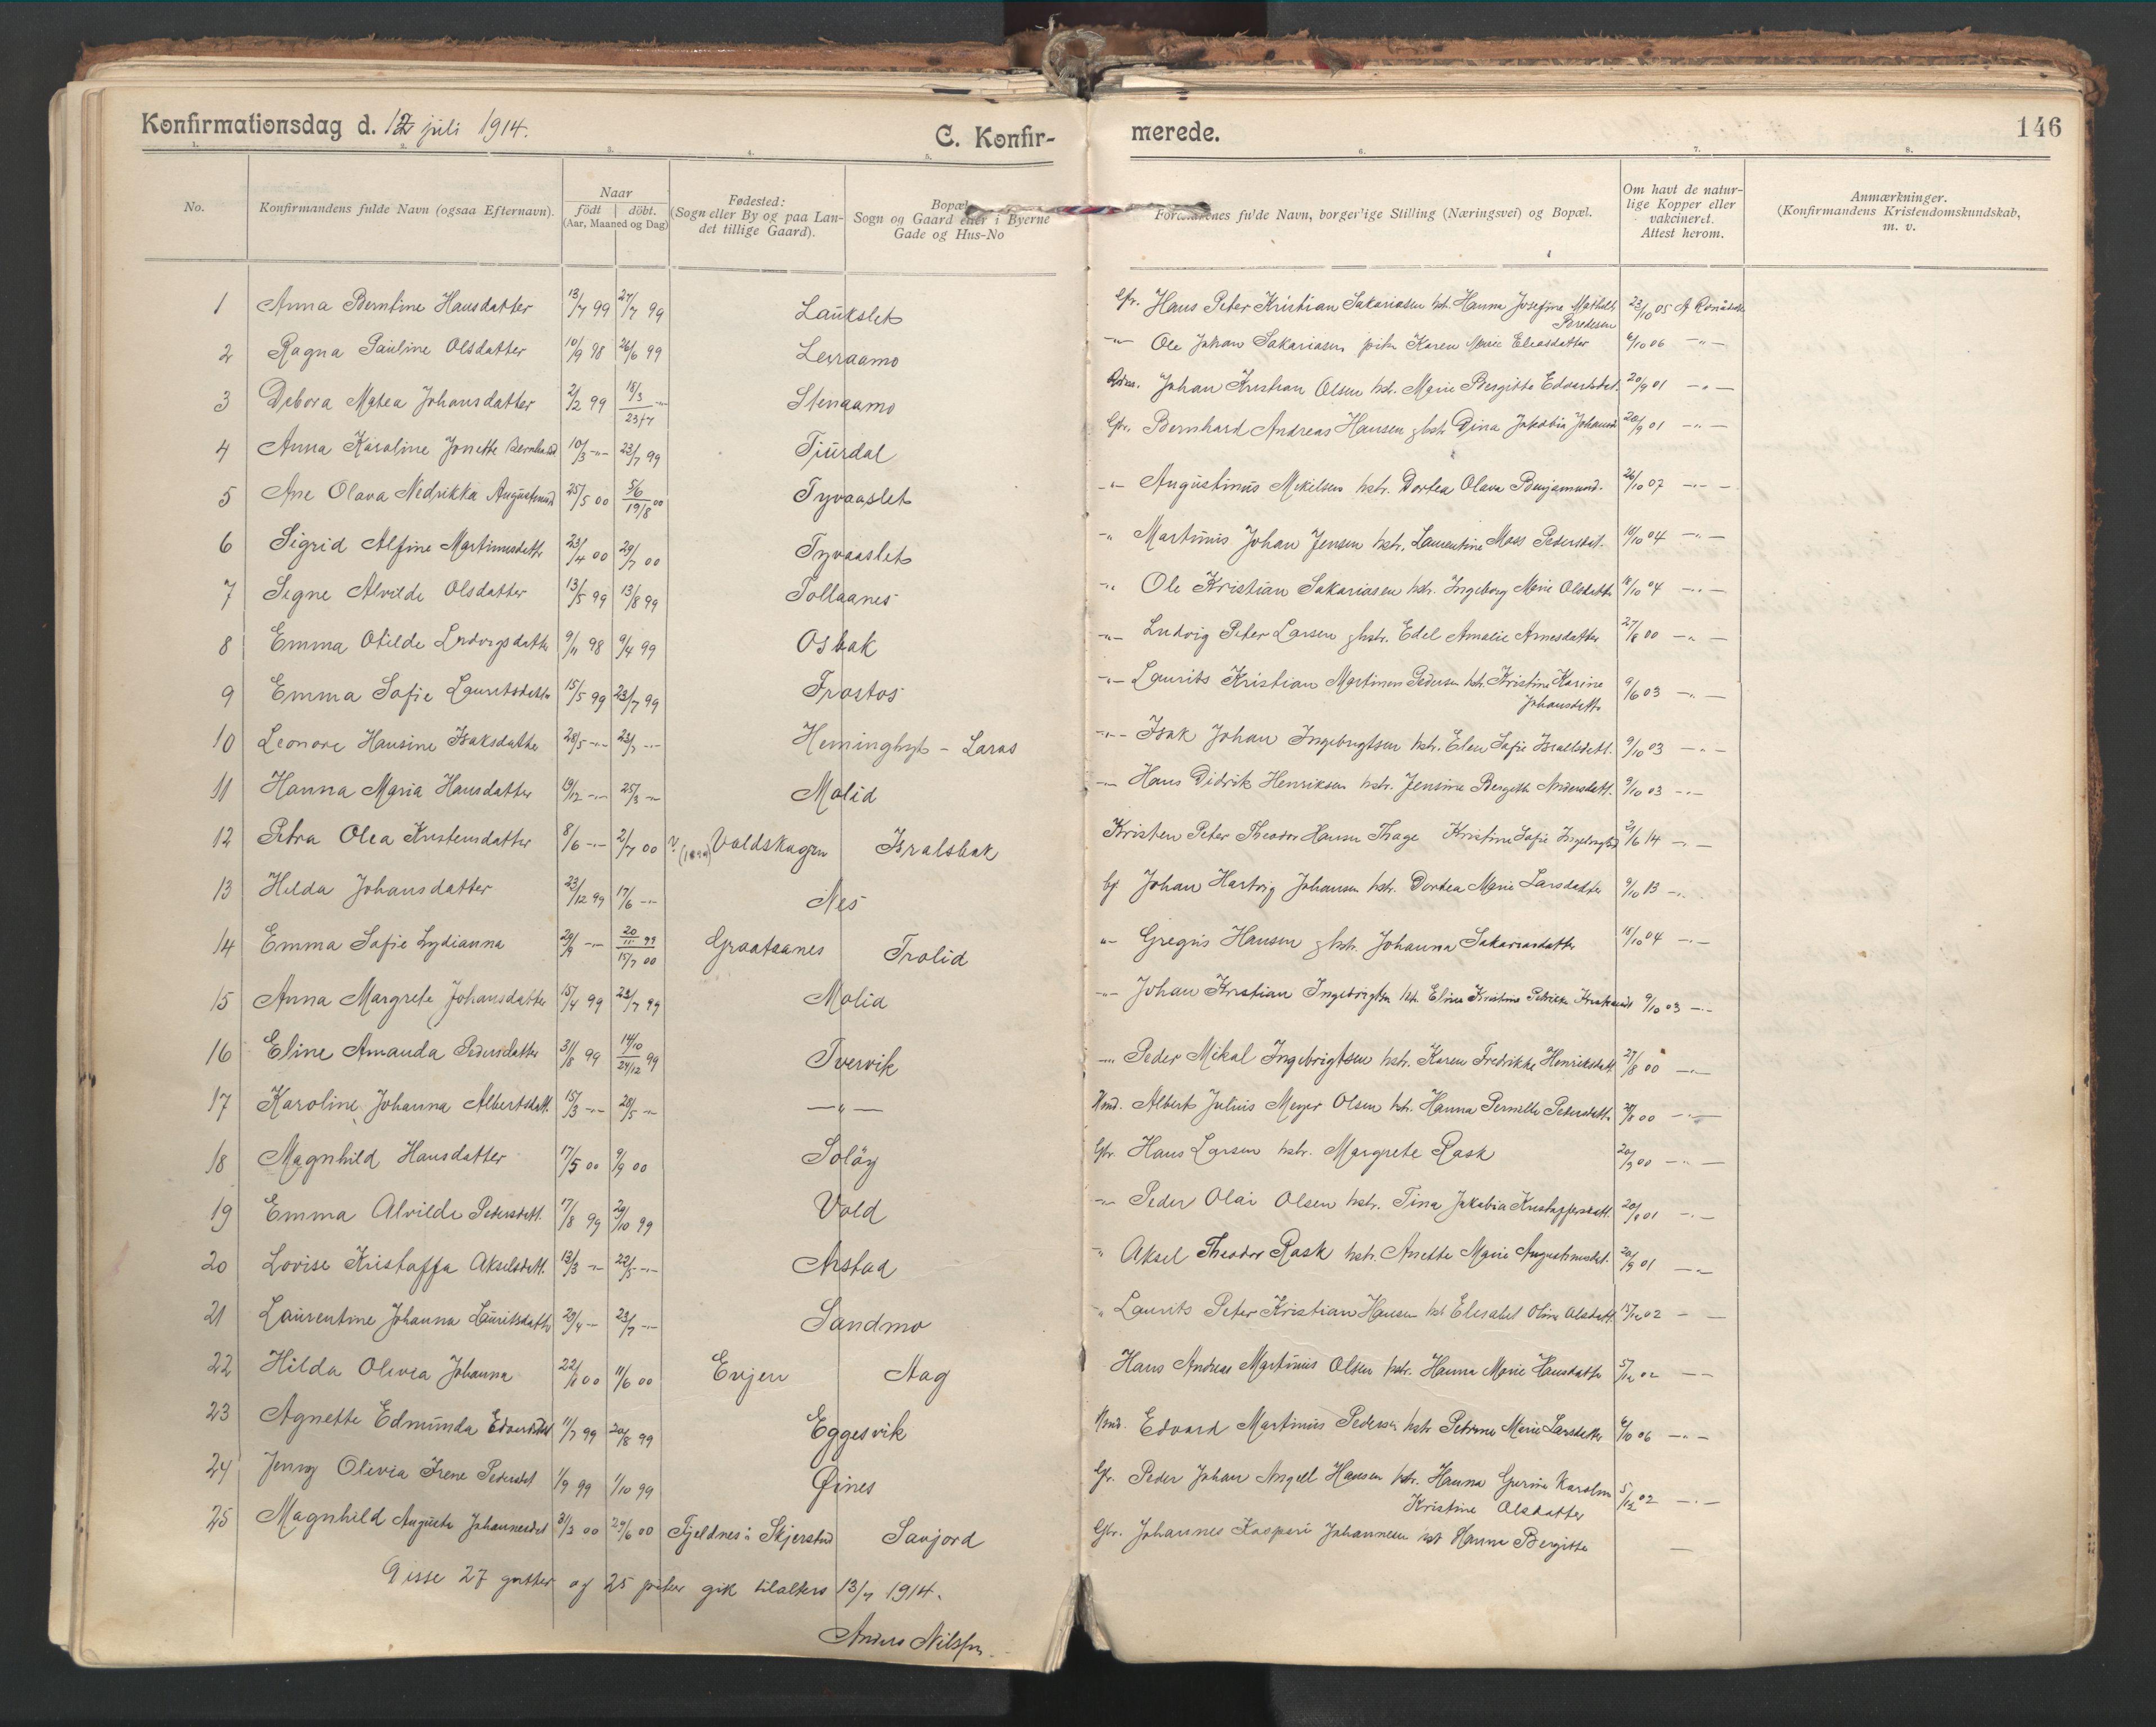 Konfirmationsdag d. 12 juli 1914.
C. Konfir-
merede.
146
1. 2. 3. 4. 5. 6. 7. 8.
No.
Konfirmandens fulde Navn (ogsaa Efternavn).
Naar
födt | döbt.
(Aar, Maaned og Dag)
Fødested:
(Sogn eller By og paa Lan-
det tillige Gaard).
Bopæl
Sogn og Gaard eller i Byerne
Gade og Hus-No
Forældrenes fulde Navn, borgerlige Stilling (Næringsvei) og Bopæl.
Om havt de natur-
lige Kopper eller
vakcineret.
Attest herom.
Anmærkninger.
(Konfirmandens Kristendomskundskab,
m. v.
1 Anna Berntine Hansdatter 13/7 99 27/7 99 Laukslet Gbr. Hans Peter Kristian Sakariasen hstr. Hanna Josefine Mathilde 23/10 05
Bredesen
2 Ragna Pauline Olsdatter 10/9 98 26/6 99 Leiraamo -"- Ole Johan Sakariasen pike Karen Marie Eliasdatter 6/10 06 -"-
3 Debora Matea Johansdatter 2/2 99 18/3 -"- 23/7 Stenaamo Johan Kristian Olsen hstr. Marie Bergitte Edvardsdat. 20/9 01 -"-
4 Anna Karoline Jonette Bernhardd 10/3 -"- 23/7 99 Tjurdal Gbr. Bernhard Andreas Hansen g hstr. Dina Jakobia Johansd 20/9 01 -"-
5 Ane Olava Nedrikka Augustinusd 25/5 00 5/6 19/8 00 Tyvaaslet -"- Augustinus Mikelsen hstr. Dortea Olava Benjaminsd. 26/10 07 -"-
6 Sigrid Alfine Martinusdattr 23/4 00 29/7 00 Tyvaaslet -"- Martinus Johan Jensen hstr. Laurentine Moss Pedersdat. 10/10 04 -"-
7 Signe Alvilde Olsdatter 13/5 99 13/8 99 Tollaanes -"- Ole Kristian Sakariasen hstr. Ingeborg Marie Olsdattr 10/10 04 -"-
8 Emma Otilde Ludvigsdattr 9/11 98 9/4 99 Osbak -"- Ludvig Peter Larsen g hstr. Edel Amalie Arnesdatter 27/8 00 -"-
9 Emma Sofie Lauritsdattr 15/5 99 23/7 99 Trostos -"- Laurits Kristian Martinus Pedersen hstr. Kristine Karine 9/6 03 -"-
Johansdattr
10 Leonore Hansine Isaksdatter 28/5 -"- 23/7 -"- Heminghyt - Laras -"- Isak Johan Ingebrigtsen hstr. Elen Sofie Israelsdatt. 9/10 03 -"-
11 Hanna Maria Hansdatter 19/12 -"- 25/3 -"- Molid -"- Hans Didrik Henriksen hstr. Jensine Bergitte Andersdatt. 9/10 03 -"-
12 Petra Olea Kristensdatter 8/6 -"- 2/7 00 Valdskagen Isralsbak Kristen Peter Theodor Hansen Thage Kristine Sofie Ingebrigtsd 21/6 14 -"-
13 Hilda Johansdatter 23/12 99 17/6 -"- Nes Johan Hartvig Johansen hstr. Dortea Marie Larsdatter 9/10 13 -"-
14 Emma Sofie Lydianna 29/9 -"- 20/11 99 15/7 00 Graataanes Trolid -"- Gregus Hansen g hstr. Johanna Sakariasdatter 10/10 04 -"-
15 Anna Margrete Johansdatter 15/4 99 23/7 99 Molid -"- Johan Kristian Ingebrigtsen hstr. Eline Kristine 9/10 03 -"-
16 Eline Amanda Pedersdatter 31/8 99 14/10 24/12 99 Tvervik -"- Peder Mikal Ingebrigtsen hstr. Karen Fredrikke Henriksdatt 27/8 00 -"-
17 Karoline Johanna Albertsdatt. 15/3 -"- 28/5 -"- -"- Albert Julius Meyer Olsen hstr. Hanna Pernille Pedersdattr 28/8 00 -"-
18 Magnhild Hansdatter 17/5 00 9/9 00 Soløy Gbr. Hans Larsen hstr. Margrete Rask 20/9 00 -"-
19 Emma Alvilde Pedersdatt. 17/8 99 29/10 99 Vold -"- Peder Olai Olsen hstr. Tina Jakobia Kristoffersdatt. 20/9 01 -"-
20 Lovise Kristoffa Akselsdatt. 13/3 -"- 22/5 -"- Arstad -"- Aksel Theodor Rask hstr. Anette Marie Augustinusdat. 20/9 01 -"-
21 Laurentine Johanna Lauritsdattr 20/4 -"- 23/7 -"- Sandmo -"- Laurits Peter Kristian Hansen hst Elisabet Oline Olsdatt 02 -
22 Hilda Olivia Johanna 22/1 00 11/6 00 Evjen Aag Hans Andreas Martinus Olsen hstr. Hanna Marie Hansdatter 5/12 02 -
23 Agnette Edmunda Edvardsdat 11/7 99 20/8 99 Eggesvik Edvard Martinus Pedersen hstr Petrine Marie Larsdatter 6/10 06 -"-
24 Jenny Olivia Irene Pedersdat 1/9 99 1/10 99 Øines Gbr. Peder Johan Angell Hansen hstr. Hanna Gurine Karoline 5/12 02 -"-
Kristine Olsdatter
25 Magnhild Augusta Johannesdat 3/2 00 24/6 00 Fjeldnes i Skjerstad Savjord Gbr. Johannes Kasperi Johannesen hstr Hanna Bergitte -
Disse 27 gutter og 25 piker gik tilalters 13/7 1914.
Anders Nilssen.